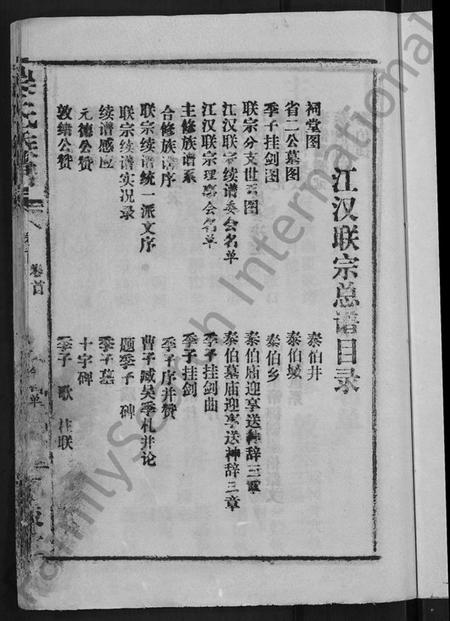 江汉联宗总谱目录
祠堂图
泰伯井
省二公墓图
泰伯城
季子挂剑图
泰伯乡
联宗分支世系图
泰伯庙迎享送神辞三章
江汉联宗续谱委会名单
泰伯墓庙迎享送神辞三章
江汉联宗理事会名单
季子挂剑曲
主修族谱系
季子挂剑
合修族谱序
季子序并赞
联宗续谱统一派文序
曹子臧吴季札并论
联宗续谱实况录
题季子碑
续谱感应
季子墓
元德公赞
十字碑
敦绪公赞
季子歌 柱联
卷首
FamilySearch International